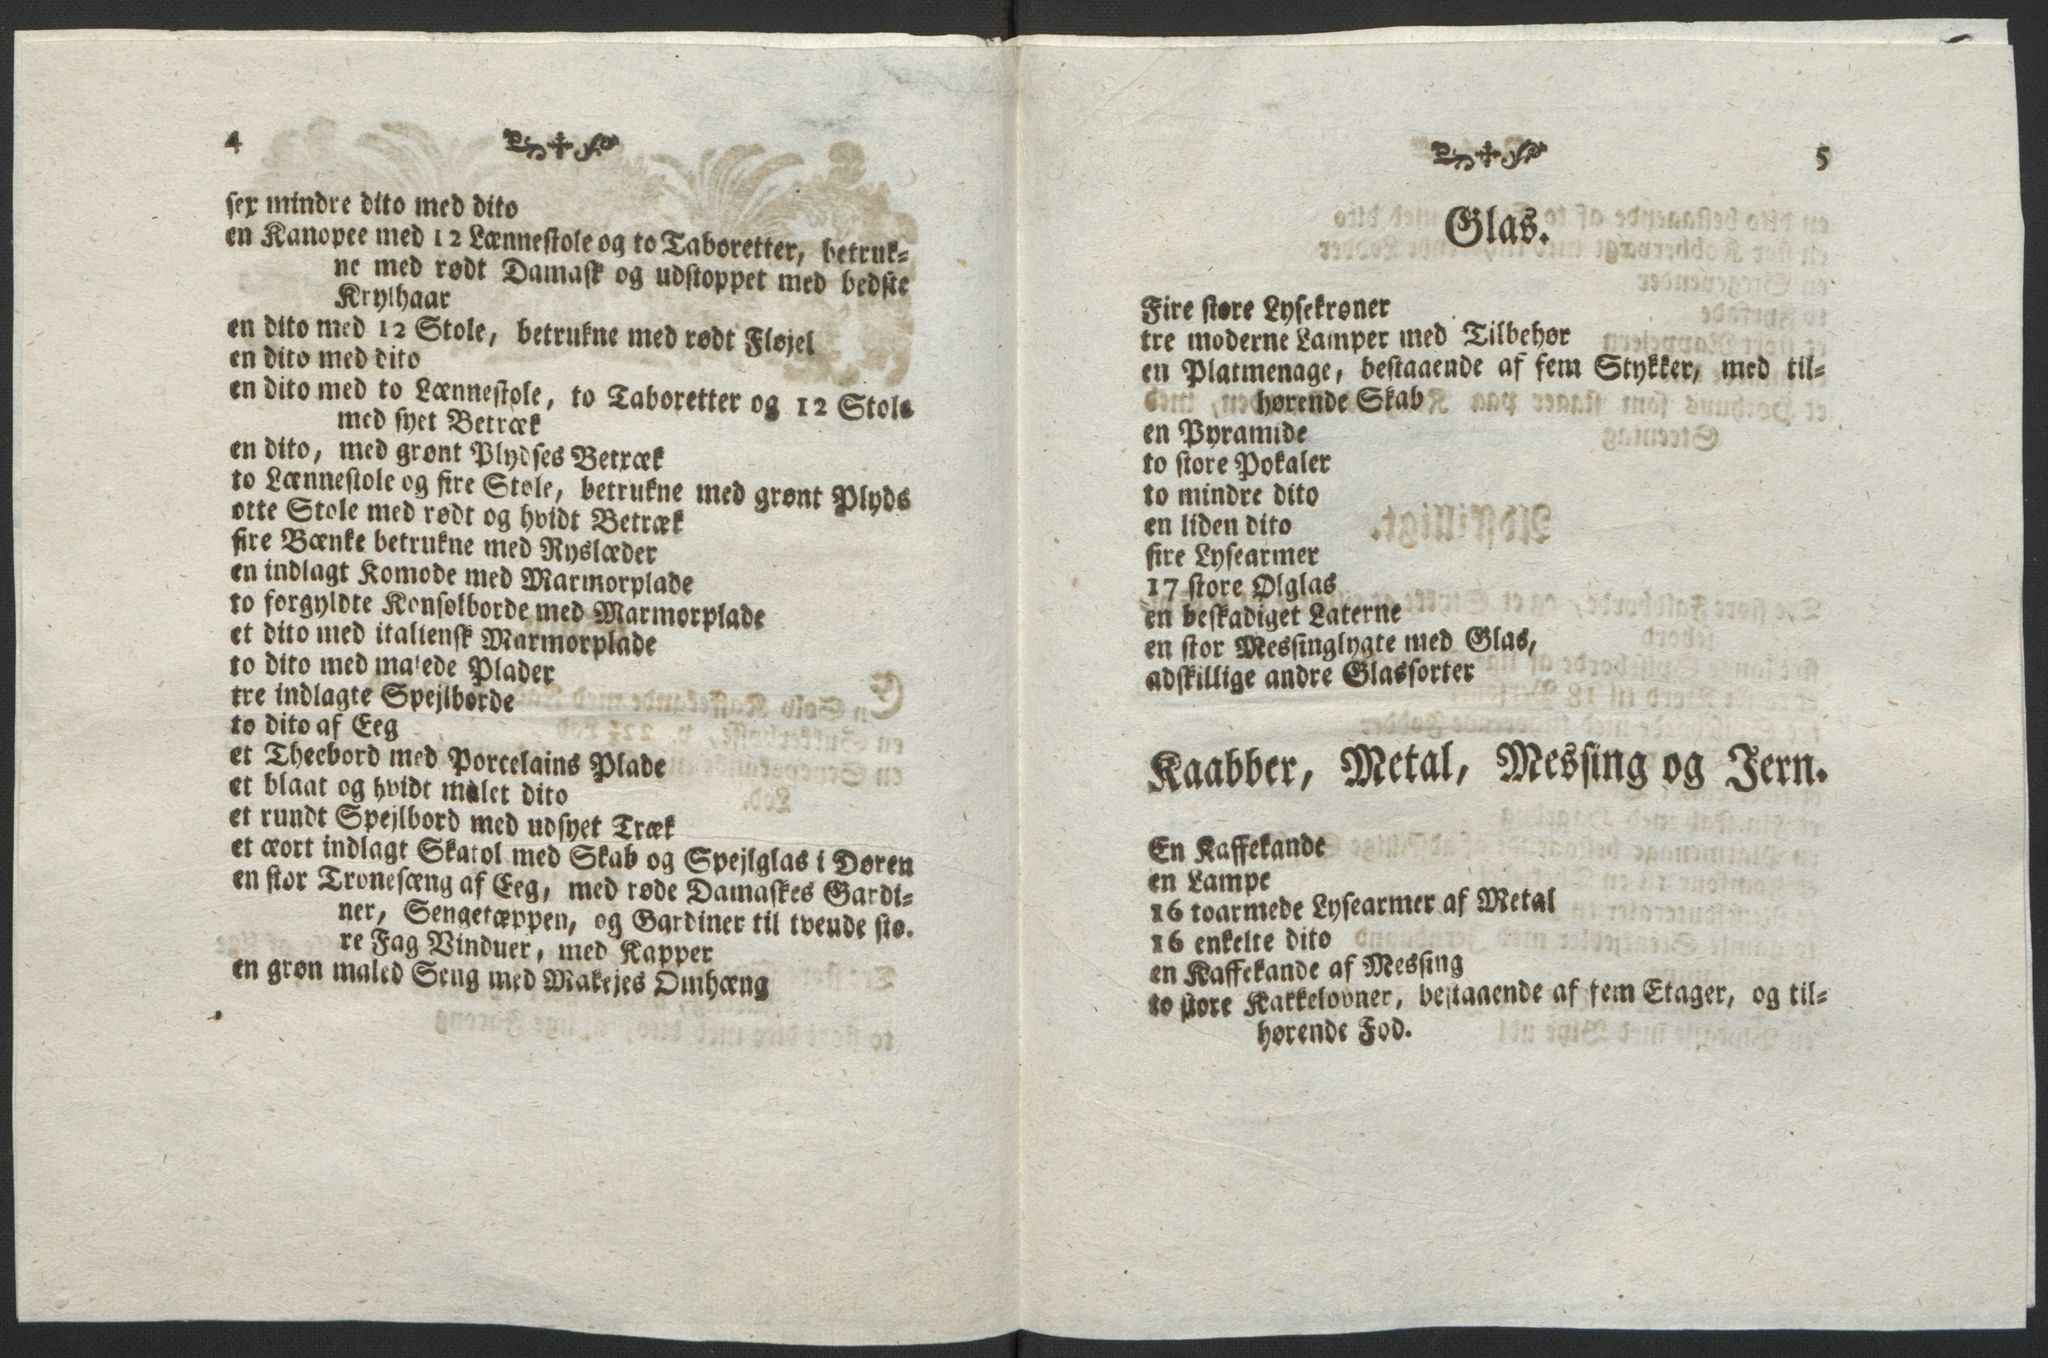 4
sex mindre dito med dito
en Kanopee med 12 Lænnestole og to Taboretter, betruk-
ne med rødt Damask og udstoppet med bedste
Krylhaar
en dito med 12 Stole, betrukne med rødt Fløjel
en dito med dito
en dito med to Lænnestole, to Taboretter og 12 Stole
med syet Betræk
en dito, med grønt Plydses Betræk
to Lænnestole og fire Stole, betrukne med grønt Plyds
otte Stole med rødt og hvidt Betræk
fire Bænke betrukne med Ryslæder
en indlagt Komode med Marmorplade
to forgyldte Konsolborde med Marmorplade
et dito med italiensk Marmorplade
to dito med malede Plader
tre indlagte Spejlborde
to dito af Eeg
et Theebord med Porcelains Plade
et blaat og hvidt malet dito
et rundt Spejlbord med udsyet Træk
et æort indlagt Skatol med Skab og Spejlglas i Døren
en stor Tronesæng af Eeg, med røde Damaskes Gardi-
ner, Sengetæppen, og Gardiner til tvende sto.
re Fag Vinduer, med Kapper
en grøn maled Seng med Makejes Omhæng
5
Glas.
Fire støre Lysekrøner
tre moderne Lamper med Tilbehør
en Platmenage, bestaaende af fem Stykker, med til-
hørende Skab
en Pyramide
to store Pokaler
to mindre dito
en liden dito
fire Lysearmer
17 store Ølglas
en beskadiget Laterne
en stor Messinglygte med Glas,
adskillige andre Glassorter
Kaabber, Metal, Messing og Jern.
En Kaffekande
en Lampe
16 toarmede Lysearmer af Metal
16 enkelte dito
en Kaffekande af Messing
to store Kakkelovner, bestaaende af fem Etager, og til-
hørende Fod.